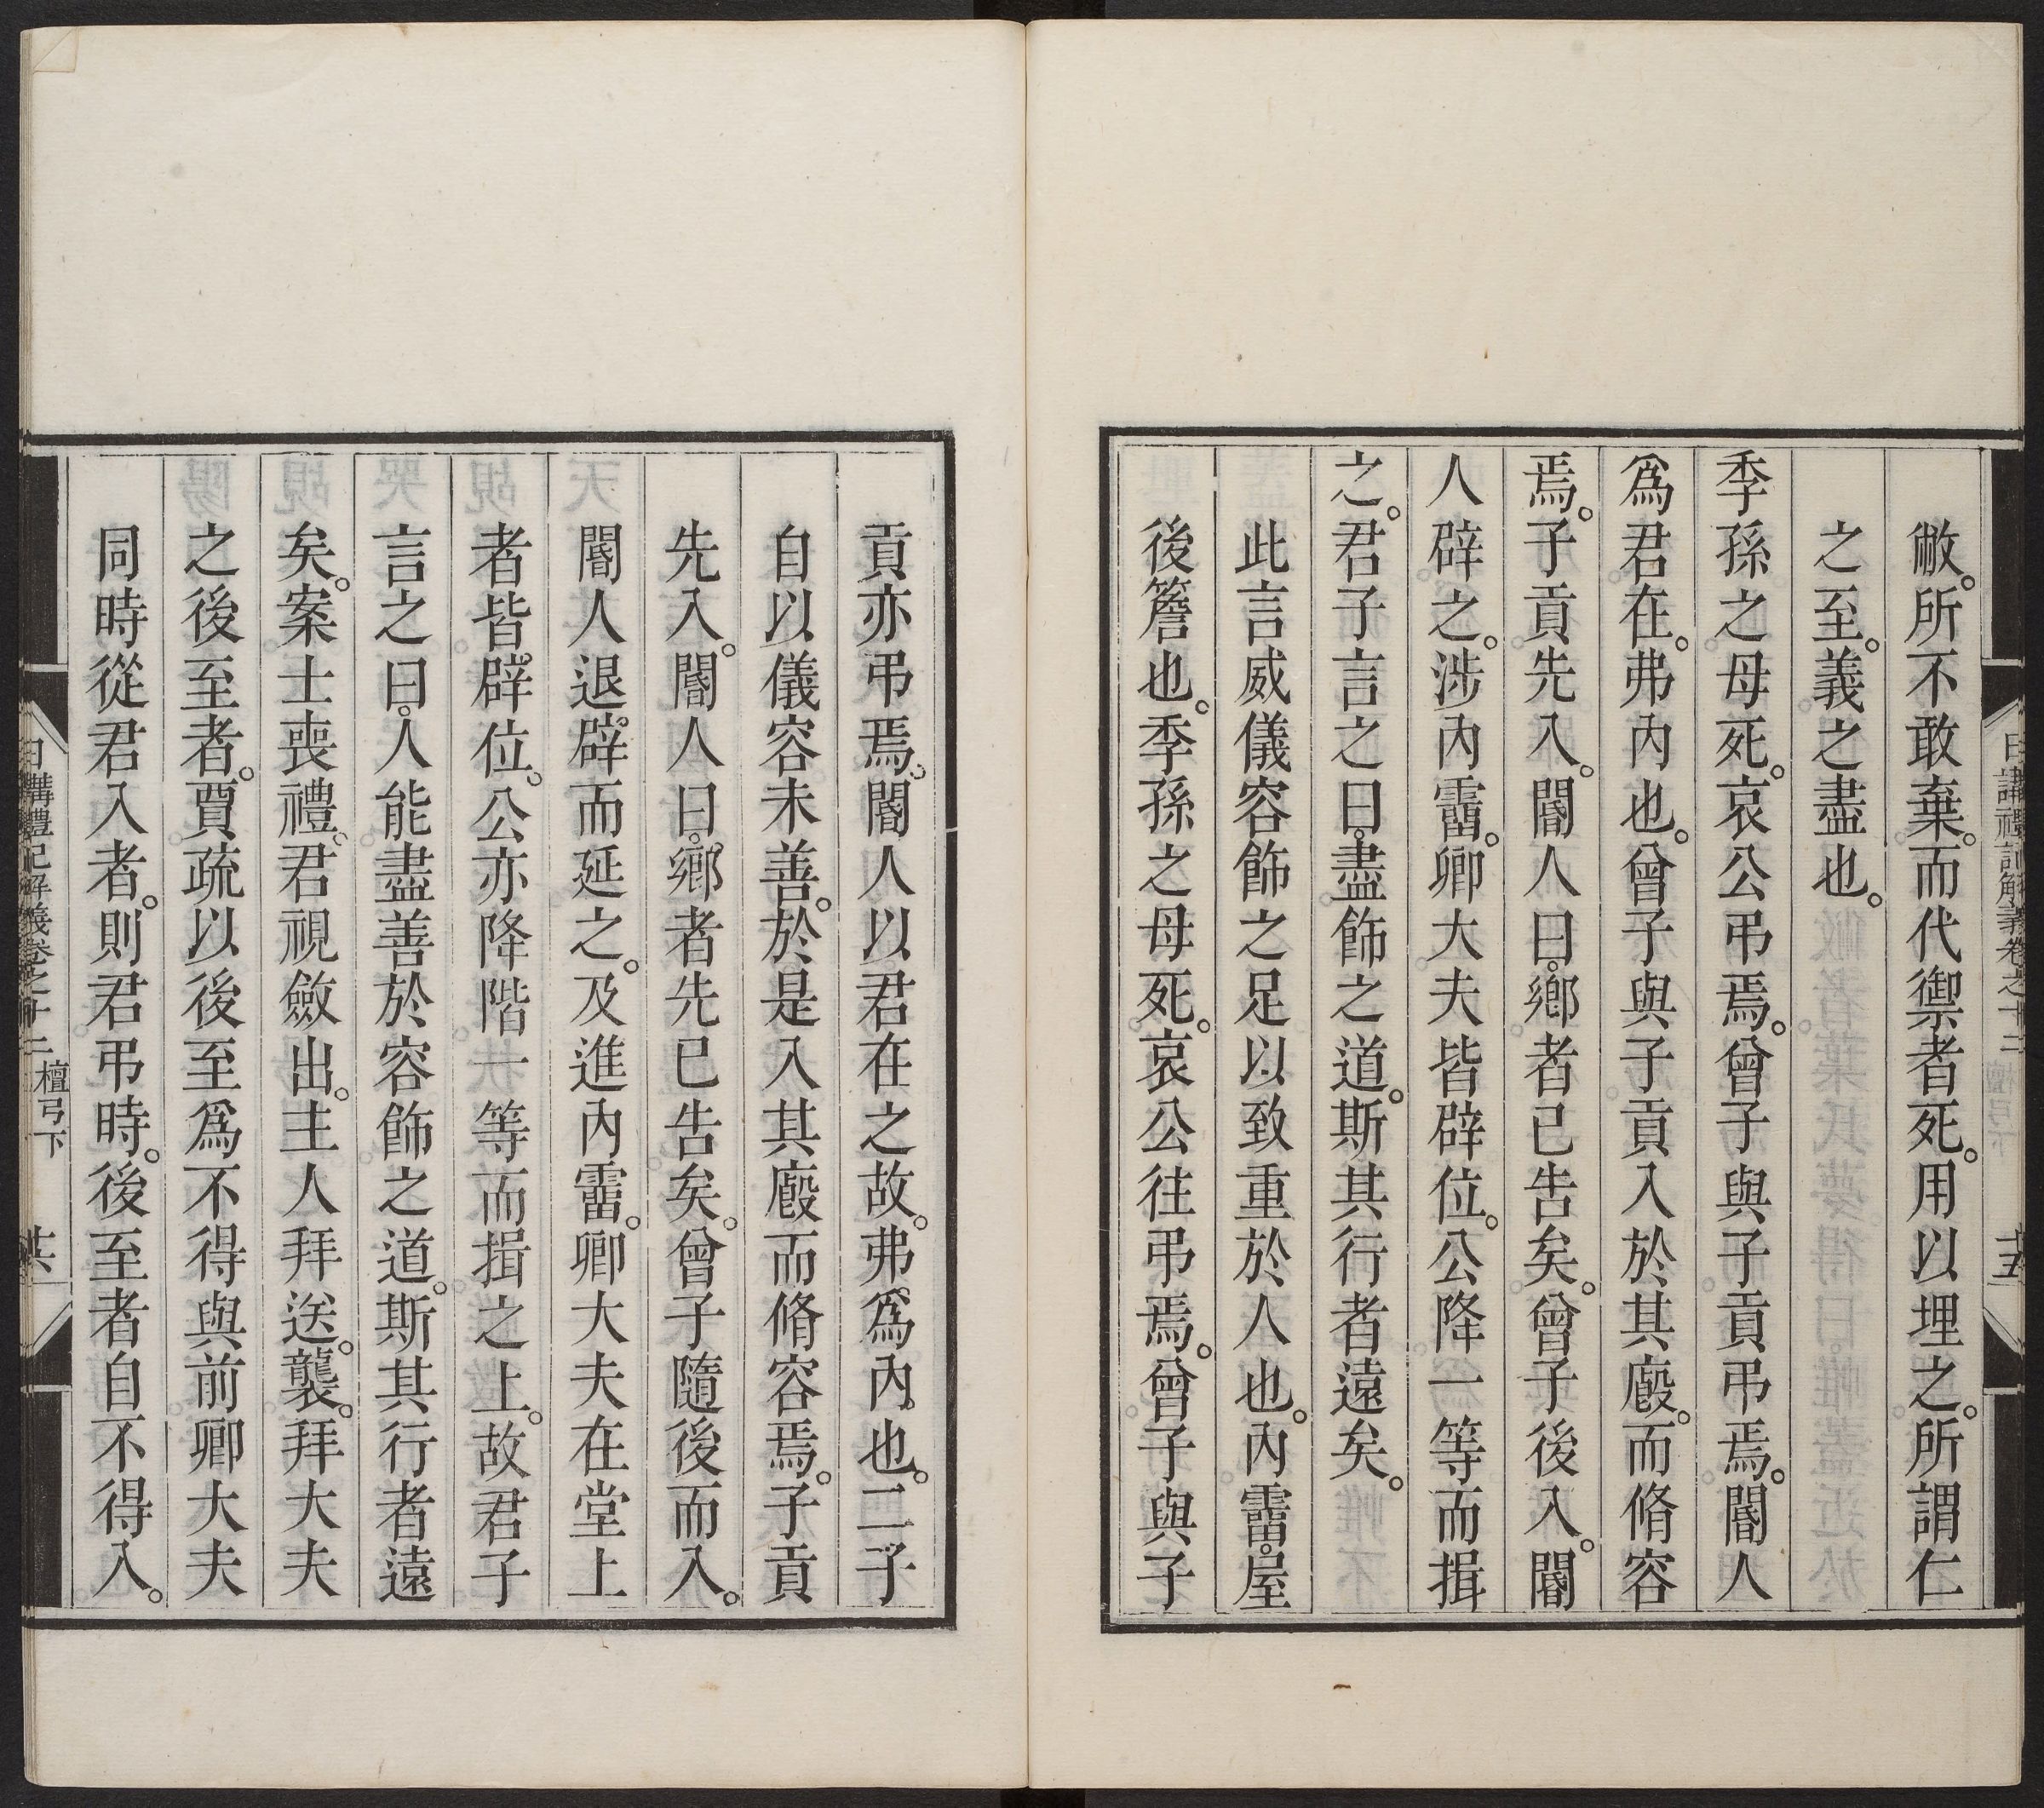 日講禮記解義卷之十二 檀弓下 十五
敝。所不敢棄。而代禦者死。用以埋之。所謂仁
之至。義之盡也。
季孫之母死。哀公弔焉。曾子與子貢弔焉。閽人
爲君在。弗內也。曾子與子貢入於其廏。而脩容
焉。子貢先入。閽人曰。鄉者已告矣。曾子後入。閽
人辟之。涉內霤。卿大夫皆辟位。公降一等而揖
之。君子言之曰。盡飾之道。斯其行者遠矣。
此言威儀容飾之足以致重於人也。內霤。屋
後簷也。季孫之母死。哀公往弔焉。曾子與子
貢亦弔焉。閽人以君在之故。弗爲內也。二子
自以儀容未善。於是入其廏而脩容焉。子貢
先入。閽人曰。鄉者先已告矣。曾子隨後而入。
閽人退辟而延之。及進內霤。卿大夫在堂上
者皆辟位。公亦降階一等而揖之上。故君子
言之曰。人能盡善於容飾之道。斯其行者遠
矣。案士喪禮。君視斂出。主人拜送。襲。拜大夫
之後至者。賈疏以後至爲不得與前卿大夫
同時從君入者。則君弔時。後至者自不得入。
日講禮記解義卷之十二 檀弓下 十六